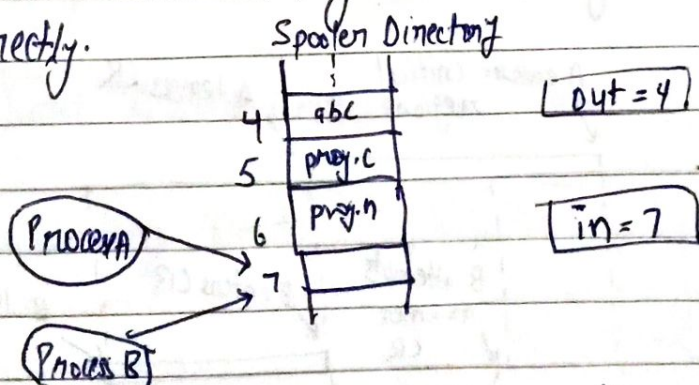 rectly.
Spooler Directory
4 abc
out = 4
5 prog.c
6 prog.n
in = 7
Process A
7
Process B